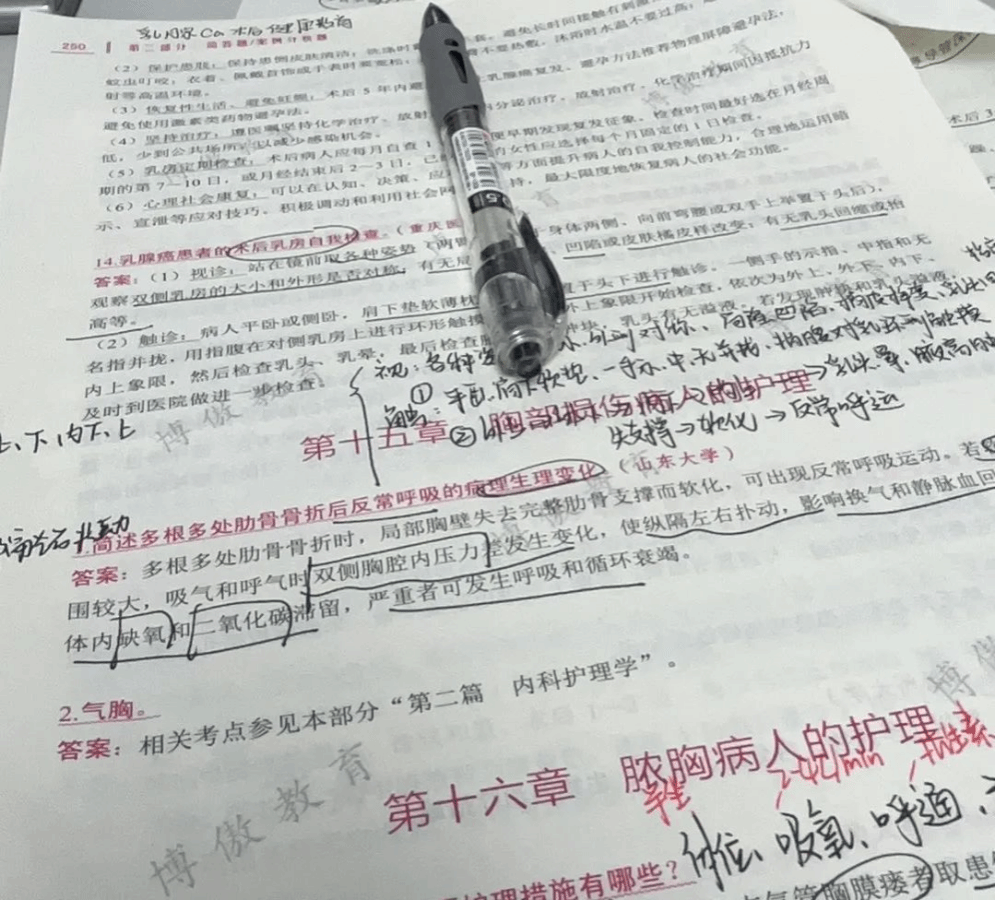 乳腺Ca 术后健康教育
250 第二部分 简答题/案例分析题
(2) 保护患肤:保持患侧皮肤清洁;
蚊虫叮咬;衣着、佩戴首饰或手表时要宽松,
射等高温环境。
(3) 恢复性生活、避免妊娠:术后 5 年内避 乳腺癌复发。避孕方法推荐物理屏障避孕法,
避免使用激素类药物避孕法。
(4) 坚持治疗:遵医嘱坚持化学治疗、放射 内分泌治疗。放射治疗、化学治疗期间因抵抗力
低,少到公共场所,以减少感染机会。
(5) 乳房定期检查:术后病人应每月自查 1 便早期发现复发征象。检查时间最好选在月经周
期的第 7~10 日,或月经结束后 2~3 日,已 的女性应选择每个月固定的 1 日检查。
(6) 心理社会康复:可以在认知、决策、应 等方面提升病人的自我控制能力,合理地运用暗
示、宣泄等应对技巧、积极调动和利用社会网 持,最大限度地恢复病人的社会功能。
14.乳腺癌患者的术后乳房自我检查。(重庆医
答案:(1) 视诊:站在镜前取各种姿势(两臂 于身体两侧、向前弯腰或双手上举置于头后),
观察双侧乳房的大小和外形是否对称;有无局 凹陷或皮肤橘皮样改变;有无乳头回缩或抬
高等。
(2) 触诊:病人平卧或侧卧,肩下垫软薄枕 置于头下进行触诊。一侧手的示指、中指和无
名指并拢,用指腹在对侧乳房上进行环形触摸 外上象限开始检查,依次为外上、外下、内下、
内上象限,然后检查乳头、乳晕,最后检查腋 肿块,乳头有无溢液。若发现肿块和乳头溢液,
及时到医院做进一步检查。
视:各种姿 大小、外形对称、局隆凹陷、橘皮样变、乳头回
触:①平卧、肩下软垫、一手示、中、无并拢、指腹对乳环形触摸
② →乳头、晕、腋窝
上、下、内下、上
第十五章 胸部损伤病人的护理
失支撑→软化→反常呼运
1.简述多根多处肋骨骨折后反常呼吸的病理生理变化。(山东大学)
答案:多根多处肋骨骨折时,局部胸壁失去完整肋骨支撑而软化,可出现反常呼吸运动。若
围较大,吸气和呼气时双侧胸腔内压力差发生变化,使纵隔左右扑动,影响换气和静脉血回
体内缺氧和二氧化碳滞留,严重者可发生呼吸和循环衰竭。
2.气胸。
答案:相关考点参见本部分“第二篇 内科护理学”。
第十六章 脓胸病人的护理
2-4L/min 抗生素
半坐
体位、吸氧、呼通、
护理措施有哪些?
支气管胸膜瘘者取患
博傲教育